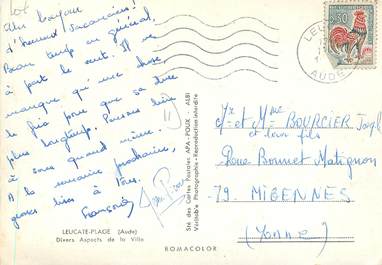 Un bonjour
d'heureux vacanciers!
Beau temps en général,
à part le vent. Il ne
manque qu'une chose
le fric pour que sa dure
plus longtemps. Pensons bien
à vous quand même.
A la semaine prochaine,
grosses bises à Tous.
Françoise
Jean Pierre
LEUCATE-PLAGE (Aude)
Divers Aspects de la Ville
Sté des Cartes Postales APA-POUX - ALBI
Véritable Photographie - Reproduction interdite
ROMACOLOR
LEUCATE
AUDE
0,30
Mr et Mme BOURCIER
et leur fils
Rue Bonnet Matignon
79. MIGENNES
(Yonne)